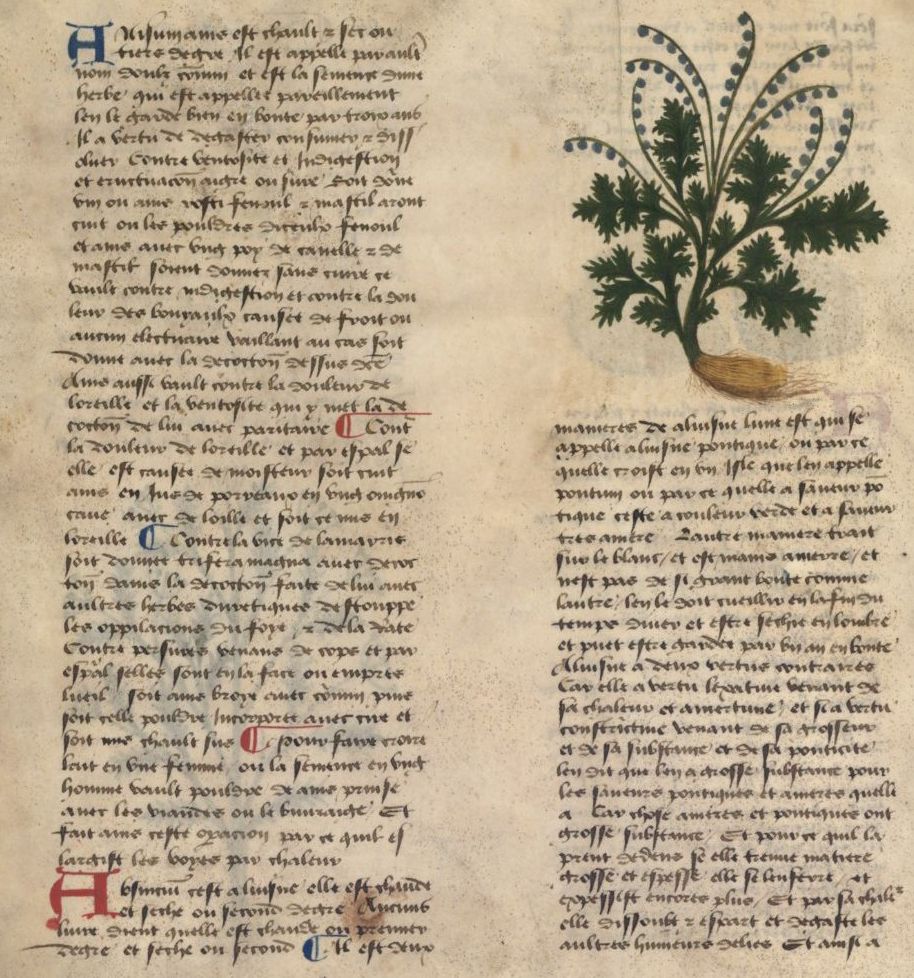 Anisum anis est chault & sec ou
tiers degre Il est appelle par ault
nom doulz comin et est la semence dune
herbe qui est appellee pareillement
len le garde bien en bonte par trois ans
Il a vertu de degaster consumer & diss
oluer Contre ventosite et Indigestion
et eructuacon aigre ou sure Soit done
vin ou anis rosti fenoul & mastil aront
cuit ou les pouldres diceulx fenoul
et anis auec vng poy de canelle & de
mastic soient donnez sans cuire ce
vault contre indigestion et contre la dou
leur des bouyaulx causee de froit ou
aucun electuaire vaillant au cas soit
donne auec la decoction dessus dce
Anis aussi vault contre la douleur de
loreille et la ventosite qui y met la de
cocton de lui auec paritaire Cont
la douleur de loreille et par espal se
elle est causee de moisteur soit cuit
anis en Jus de porreaux en vng ongno
caue auec de loille et soit ce mis en
loreille Contre la vice de lamarris
soit donnee trifera magna auec decoc
ton dans la decocton faite de lui auec
aultres herbes duretiques destouppe
les oppilacions du foye & de la rate
Contre persures venans de cops et par
espal selles sont en la face ou empres
lueil soit anis broye auec comin puis
soit celle pouldre Incorporee auec cire et
soit mis chault sus pour faire croire
lait en vne femme ou la semence en vng
homme vault pouldre de anis prinse
auec les viandes ou le buuraige Et
fait anis ceste opacion par ce quil es
largist les voyes par chaleur
Absincium cest aluisne elle est chaude
et seche ou second degre Aucuns
liure dient quelle est chaude ou premier
degre et seche ou second Il est deux
manieres de aluisne lune est qui se
appelle aluisne pontique ou par ce
quelle croist en vn Isle que len appelle
pontum ou par ce quelle a saueur po
tique ceste a couleur verde et a saueur
tres amere Lautre maniere trait
sur le blanc / et est mains amerre / et
nest pas de si grant bonte comme
lautre / len le doit cueillir en la fin du
temps diuer et estre sechie en lombre
et puet estre gardee par vn an en bonte
Aluisne a deux vertus contraires
Car elle a vertu lexatiue venant de
sa chaleur et amertume / et si a vertu
constrictiue venant de sa grosseur
et de sa substance et de sa ponticite
len dit que len a grosse substance pour
les saueurs pontiques et ameres quelle
a Car chose ameres et pontiques ont
grosse substance / Et pour ce quil la
prent dedens se elle treuue matiere
grosse et espesse elle se lenserre / et
expessist encores plus / Et par sa chalr
elle dissoult & espart et degaste les
aultres humeurs delies Et ainsi a